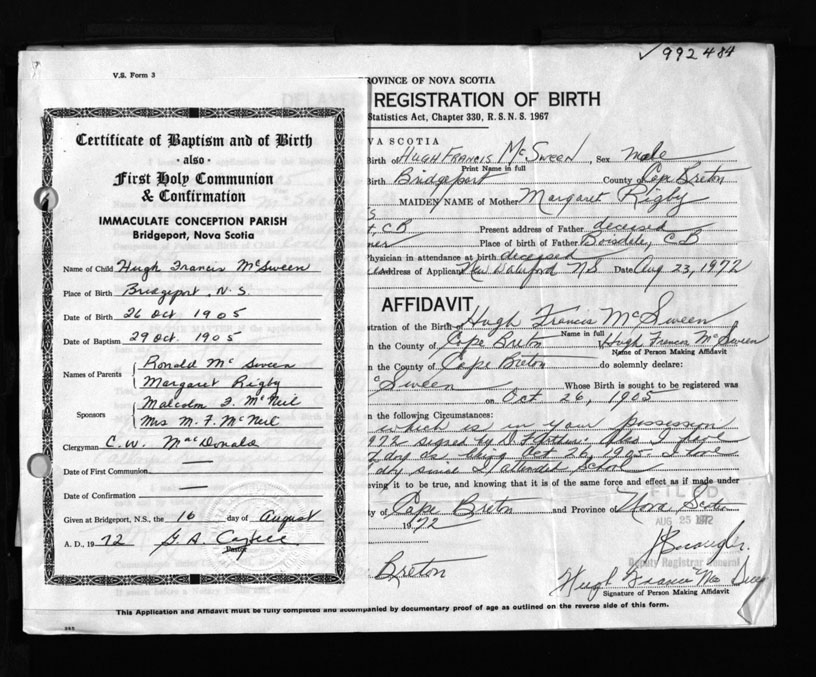 992484
V.S. Form 3
ROVINCE OF NOVA SCOTIA
REGISTRATION OF BIRTH
Statistics Act, Chapter 330, R. S. N. S. 1967
Certificate of Baptism and of Birth
· also ·
First Holy Communion
& Confirmation
IMMACULATE CONCEPTION PARISH
Bridgeport, Nova Scotia
Name of Child Hugh Francis McSween
Place of Birth Bridgeport, N.S.
Date of Birth 26 Oct. 1905
Date of Baptism 29 Oct. 1905
Names of Parents Ronald McSween
Margaret Rigby
Sponsors Malcolm F. McNeil
Mrs M. F. McNeil
Clergyman C. W. MacDonald
Date of First Communion
Date of Confirmation
Given at Bridgeport, N.S., the 16 day of August
A. D., 1972
Pastor
VA SCOTIA
Birth of HUGH FRANCIS McSWEEN, Sex male
Print Name in full
Birth Bridgeport County of Cape Breton
MAIDEN NAME of Mother Margaret Rigby
t, CB Present address of Father deceased
ner Place of birth of Father Boisdale, C B
Physician in attendance at birth deceased
Address of Applicant New Waterford NS Date Aug 23, 1972
AFFIDAVIT
stration of the Birth of Hugh Francis McSween
Name in full
n the County of Cape Breton Hugh Francis McSween
Name of Person Making Affidavit
n the County of Cape Breton do solemnly declare:
cSween Whose Birth is sought to be registered was
on Oct 26, 1905
n the following Circumstances:
which is in your possession
972 signed by Also I give
day as being Oct 26, 1905. I have
day since I attended School
eving it to be true, and knowing that it is of the same force and effect as if made under
ty of Cape Breton and Province of Nova Scotia
1972
FILED
AUG 25 1972
Deputy Registrar General
Breton
Hugh Francis McSween
Signature of Person Making Affidavit
This Application and Affidavit must be fully completed and accompanied by documentary proof of age as outlined on the reverse side of this form.